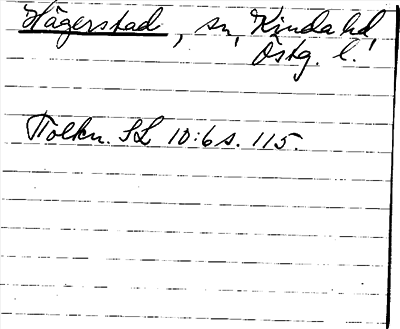 Hägerstad, sn, Kinda hd,
Östg. l.
Tolkn. SL 10:6 s. 115.